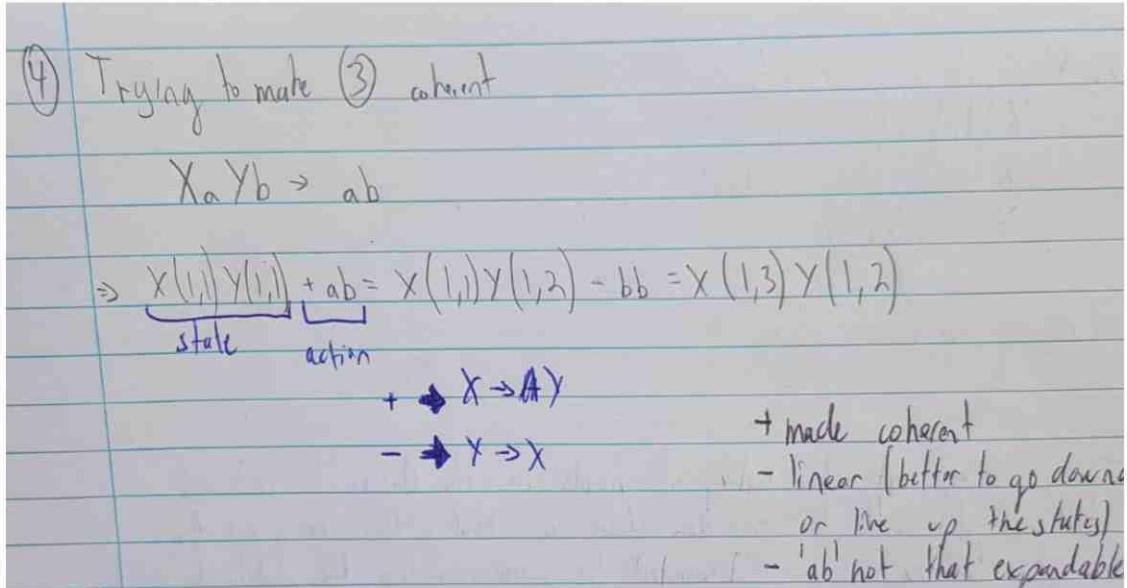 ④ Trying to make ③ coherent
XaYb → ab
⇒ X(1,1)Y(1,1) + ab = X(1,1)Y(1,2) - bb = X(1,3)Y(1,2)
state action
+ → X → Y
- → Y → X
+ made coherent
- linear (better to go down
or line up the states)
- 'ab' not that expandable